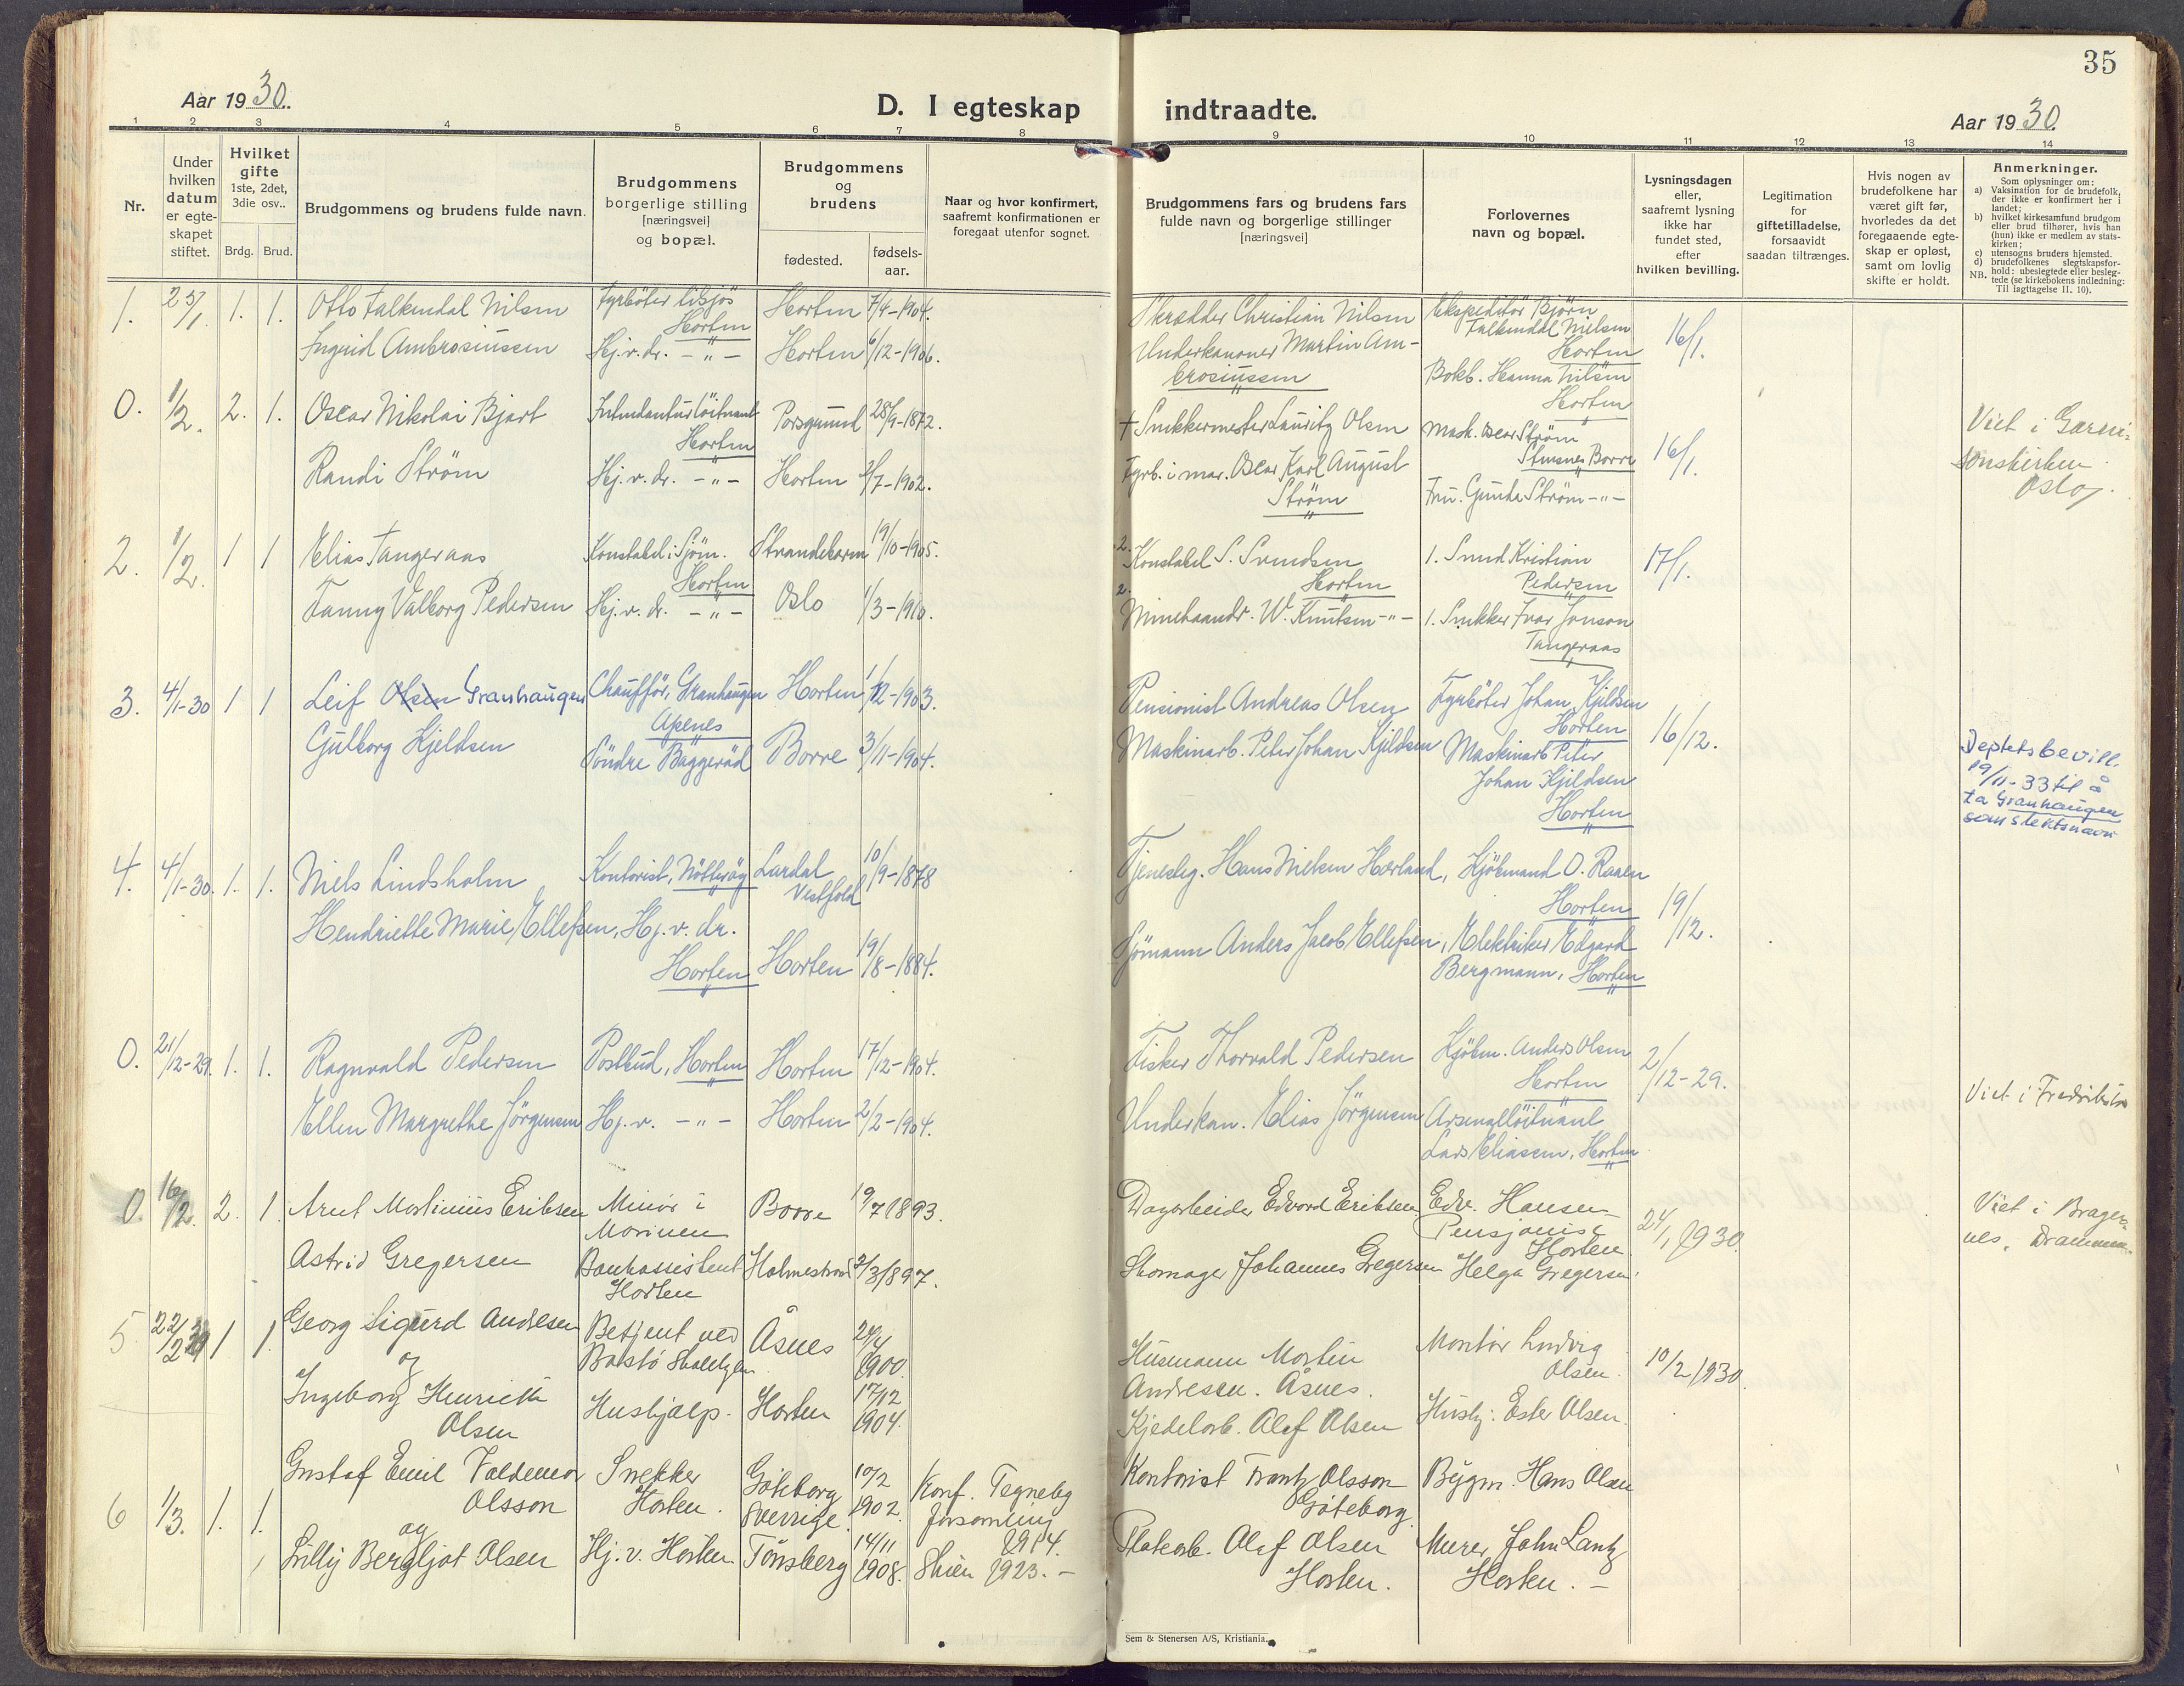 35
Aar 1930.
D. I egteskap indtraadte.
Aar 1930.
1 2 3 4 5 6 7 8 9 10 11 12 13 14
Nr.
Under hvilken datum er egteskapet stiftet.
Hvilket gifte
1ste, 2det, 3die osv..
Brdg. Brud.
Brudgommens og brudens fulde navn.
Brudgommens borgerlige stilling [næringsvei] og bopæl.
Brudgommens og brudens
fødested.
fødsels-aar.
Naar og hvor konfirmert, saafremt konfirmationen er foregaat utenfor sognet.
Brudgommens fars og brudens fars fulde navn og borgerlige stillinger [næringsvei]
Forlovernes navn og bopæl.
Lysningsdagen eller, saafremt lysning ikke har fundet sted, efter hvilken bevilling.
Legitimation for giftetilladelse, forsaavidt saadan tiltrænges.
Hvis nogen av brudefolkene har været gift før, hvorledes da det foregaaende egteskap er opløst, samt om lovlig skifte er holdt.
Anmerkninger.
Som oplysninger om:
a) Vaksination for de brudefolk, der ikke er konfirmert her i landet;
b) hvilket kirkesamfund brudgom eller brud tilhører, hvis han (hun) ikke er medlem av statskirken;
c) utensogns bruders hjemsted.
d) brudefolkenes slegtskapsforhold: ubeslegtede eller beslegtede (se kirkebokens indledning:
NB. Til iagttagelse II. 10).
1. 25/1. 1. 1. Otto Falkendal Nilsen
Fyrbøter
Horten
Horten 7/4-1904.
Skrædder Christian Nilsen
Ekspeditør Bjørn
Falkendal Nielsen
Horten
16/1.
Ingrid Ambrosiussen
Hj.v.dr. -"-
Horten 6/12-1906.
Underkanoner Martin Am-
brosiussen
Bokb. Hanna Nilsen
Horten
0. 1/2. 2. 1. Oscar Nikolai Bjart
Intendanturlöitnant
Horten
Porsgrund 28/9-1872.
+ Snekkermester Lauritz Olsen
Mask. Oscar Strøm
Borre
16/1.
Viet i Garni-
sonskirken
Oslo.
Randi Strøm
Hj.v.dr. -"-
Horten 2/7-1902.
Fyrb. i mar. Oscar Karl August
Strøm
Fru. Gunda Strøm -"-
2. 1/2. 1 1 Elias Tangeraas
Konstabel i Sjöm.
Horten
Strandebarm 19/10-1905.
2. Konstabel S. Svendsen
Horten
1. Smed Kristian
Pedersen
17/1.
Fanny Valborg Pedersen
Hj.v.dr. -"-
Oslo 1/3-1910.
2. Minehaandv. W. Knutsen -"-
1. Snekker Ivar Jonson
Tangeraas
3. 4/1-30 1 1 Leif Olsen Granhaugen
Chauffør, Granhaugen
Apenes
Horten 1/12-1903.
Pensionist Andreas Olsen
Fyrbøter Johan Kjeldsen
Horten
16/12.
Gulborg Kjeldsen
Söndre Baggeröd
Borre 3/11-1904.
Maskinarb. Peter Johan Kjeldsen
Maskinarb Peter
Johan Kjeldsen
Horten
Deptets bevill.
19/11-33 til å
ta Granhaugen
som slektsnavn
4. 4/1-30. 1. 1. Niels Lindsholm
Kontorist, Nötteröy
Lardal
Vestfold
10/9-1878
Tjenestg. Hans Nielsen Hærland,
Kjöbmand O. Raaen
Horten
19/12.
Hendriette Marie Ellefsen, Hj.v.dr.
Horten
Horten 19/8-1884.
Sjömann Anders Jacob Ellefsen,
Elektriker Edgard
Bergmann, Horten
0. 21/12-29. 1. 1. Ragnvald Pedersen
Postbud, Horten
Horten 17/12-1904.
Fisker Thorvald Pedersen
Kjöbm. Anders Olsen
Horten
2/12-29.
Viet i Fredrikstad
Ellen Margrethe Jörgensen
Hj.v. -"-
Horten 2/2-1904.
Underkan. Elias Jörgensen
Arsenallöitnant
Lars Eliassen, Horten
0. 16/2. 2. 1. Arnt Martinius Eriksen
Minör i
Marinen
Borre 19/7 1893.
Dagarbeider Edvard Eriksen
Edv. Hansen
Pensjonist
Horten
24/1 1930.
Viet i Brager-
nes, Drammen.
Astrid Gregersen
Bankassistent
Horten
Holmestrand 2/3 1897.
Skomager Johannes Gregersen
Helga Gregersen.
5 22/2 1 1. Georg Sigurd Andresen
og
Betjent ved
Bastö Skolehjem
Åsnes 24/4 1900.
Husmann Martin
Andresen. Åsnes.
Montör Ludvig
Olsen.
10/2 1930.
Ingeborg Henriette
Olsen
Hushjælp.
Horten 17/12 1904.
Kjedelarb. Olaf Olsen
Hushj. Ester Olsen.
6 1/3. 1. 1. Gustaf Emil Valdemar
Olsson
og
Snekker
Horten.
Göteborg
Sverrige.
10/2 1902.
Konf. Tegneby
forsamling
1914.
Kontorist Frantz Olsson
Göteborg.
Bygm. Hans Olsen
Lilly Bergljot Olsen
Hj. v. Horten.
Tönsberg 14/11 1908.
Skien 1923. -
Platearb. Olaf Olsen
Horten.
Murer John Lantz
Horten. -
Sem & Stenersen A/S, Kristiania.